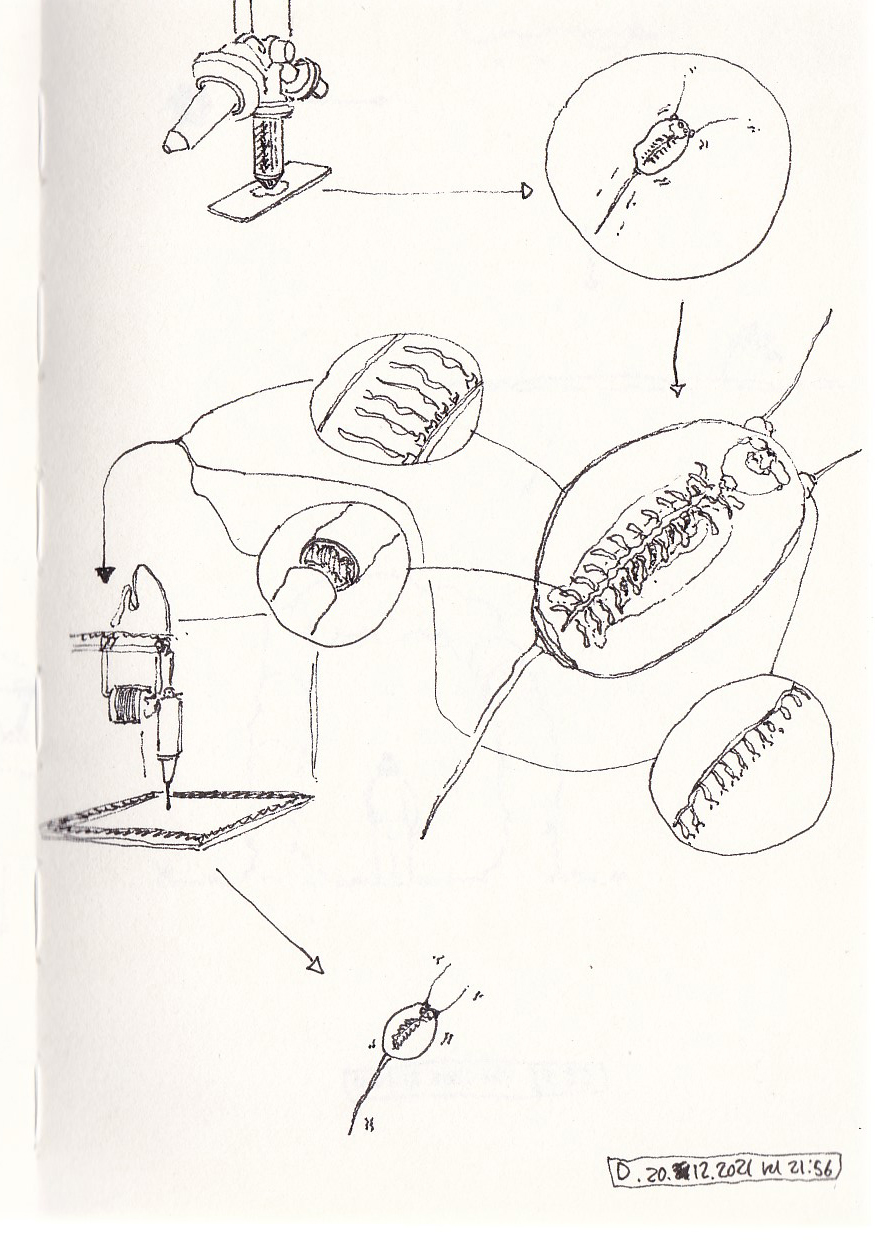 D. 20.12.2021 kl 21:56